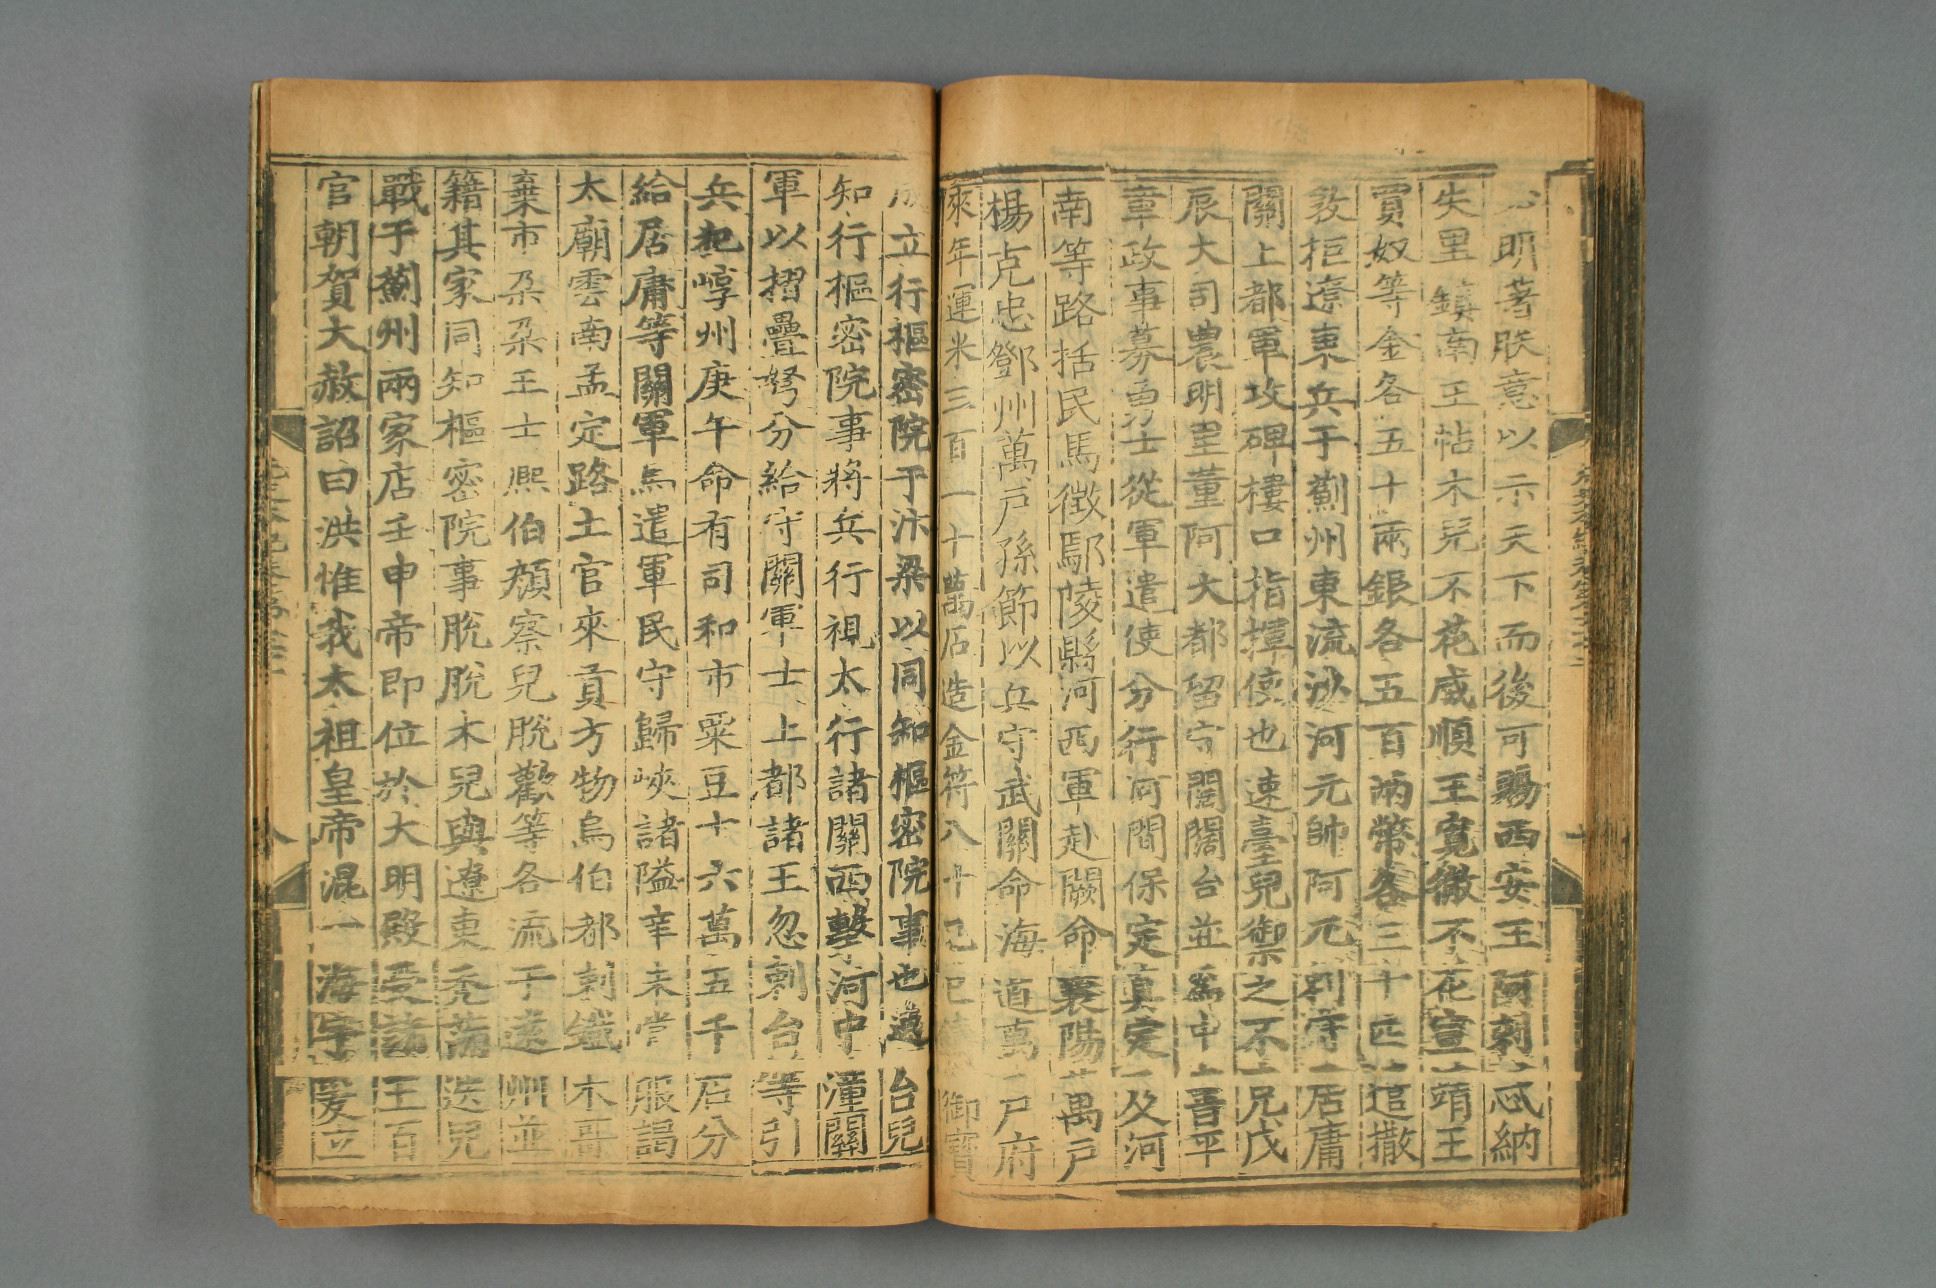 心明著朕意以示天下而後可勦西安王阿剌忒納
失里鎮南王帖木兒不花威順王寛徹不花宣靖王
買奴等金各五十兩銀各五百兩幣各三十匹遣撒
敦拒遼東兵于薊州東流沙河元帥阿兀剌守居庸
關上都軍攻碑樓口指揮使也速臺兒御之不克戊
辰大司農明里董阿大都留守闊闊台並爲中書平
章政事募勇士從軍遣使分行河間保定真定及河
南等路括民馬徴鄢陵縣河西軍赴闕命襄陽萬戸
楊克忠鄧州萬戸孫節以兵守武關命海道萬戸府
來年運米三百一十萬石造金符八十己巳鑄御寶
成立行樞密院于汴梁以同知樞密院事也速台兒
知行樞密院事將兵行視太行諸關西擊河中潼關
軍以摺疊弩分給守關軍士上都諸王忽剌台等引
兵犯崞州庚午命有司和市粟豆十六萬五千石分
給居庸等關軍馬遣軍民守歸峽諸隘辛未常服謁
太廟雲南孟定路土官來貢方物烏伯都剌鐵木哥
棄市朶朶王士熙伯顔察兒脫歡等各流于遠州並
籍其家同知樞密院事脫脫木兒與遼東禿滿迭兒
戰于薊州兩家店壬申帝即位於大明殿受諸王百
官朝賀大赦詔曰洪惟我太祖皇帝混一海宇爰立
八